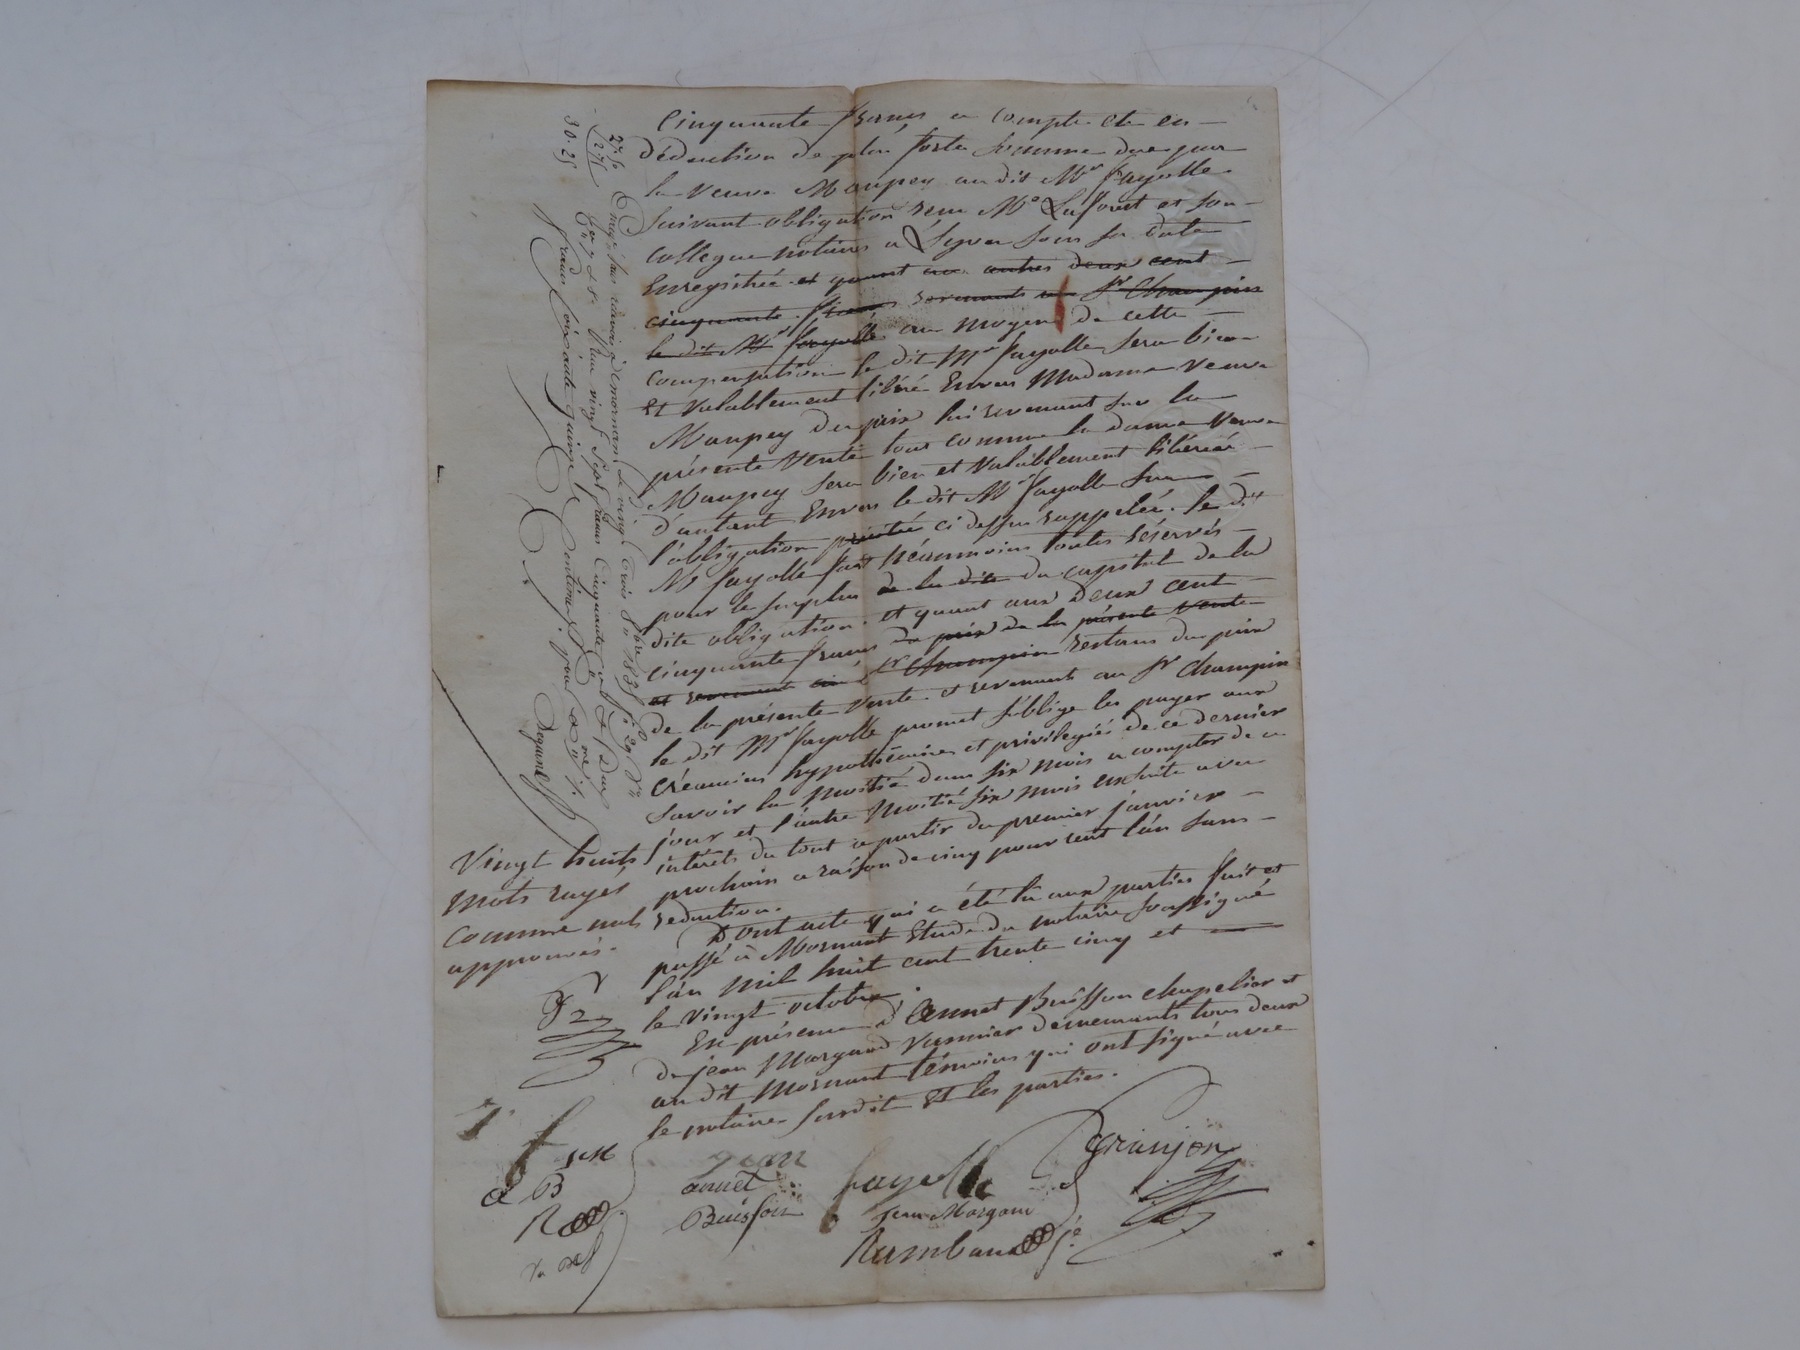 Cinquante francs a compte et en
déduction de plus forte somme due par
la veuve Maupey au dit Mr fayolle
suivant obligation recu Me Laforest et son
collegue notaires a Lyon sous sa date
Enregistrée et quant aux autres deux cent
cinquante francs revenants au Sr Champin
le dit Mr fayolle au moyen de cette
compensation le dit Mr fayolle sera bien
et valablement libéré Envers Madame veuve
Maupey du prix lui revenant sur la
présente vente tout comme la dame veuve
Maupey sera bien et valablement libérée
d'autant Envers le dit Mr fayolle sur
l'obligation précitée ci dessus rappelée. le dit
Mr fayolle fait néanmoins toutes réserves
pour le surplus de la dite du capital de la
dite obligation. et quant aux deux cent
cinquante francs du prix de la présente vente
et revenant au Sr Champin restans du prix
de la présente vente et revenant au Sr Champin
le dit Mr fayolle promet s'oblige les payer aux
créanciers hypothécaires et privilegiés de ce dernier
savoir la moitié dans six mois a compter de ce
jour et l'autre moitié six mois ensuite avec
intérêts du tout a partir du premier janvier
prochain a raison de cinq pour cent l'an sans
réduction.
Dont acte qui a été lu aux parties fait et
passé à Mornant Etude du notaire soussigné
l'an mil huit cent trente cinq et
le vingt octobre.
En présence d'Annet Buisson chapelier et
de jean Margand vannier demeurants tous deux
au dit Mornant témoins qui ont signé avec
le notaire susdit et les parties.
Vingt huit
mots rayés
comme nuls
approuvés.
27 50
2 75
30. 25
Enregé sans renvois à Mornant le vingt trois 8bre 1835 fo 29
Vingt sept francs Cinquante
francs Soixante quinze Centimes, pour
jean
annet
Buisson
fayolle
jean Margand
Rambaud
Granjon
a B